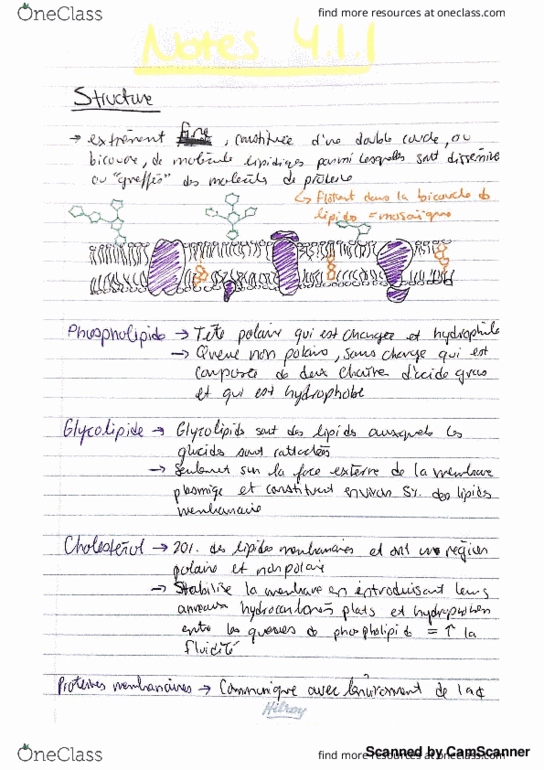 OneClass
find more resources at oneclass.com
Notes 4.1.1
Structure
→ extrêment fine, constituée d'une double couche, ou
bicouche, de molécule lipidiques parmi lesquelles sont
ou "greffés" des moleculs de protéine
↳ Flottent dans la bicouche de
lipides = mosaïque
Phospholipide → Tête polaire qui est chargée et hydrophile
→ Queue non polaire, sans charge qui est
composée de deux chaîne d'acide gras
et qui est hydrophobe
Glycolipide → Glycolipids sont des lipids auxquels les
glucids sont rattachés
→ Seulement sur la face externe de la membrane
plasmique et constituent environ 5% des lipids
membranaire
Cholestérol → 20% des lipides membranaires et ont une région
polaire et non polaire
→ Stabilise la membrane en introduisant leurs
anneaux hydrocarbonés plats et
entre les queues de phospholipid = ↑ la
fluidité
Protéines membranaires → Communique avec l'environment de la
Hilroy
OneClass
find more resources at oneclass.com
Scanned by CamScanner